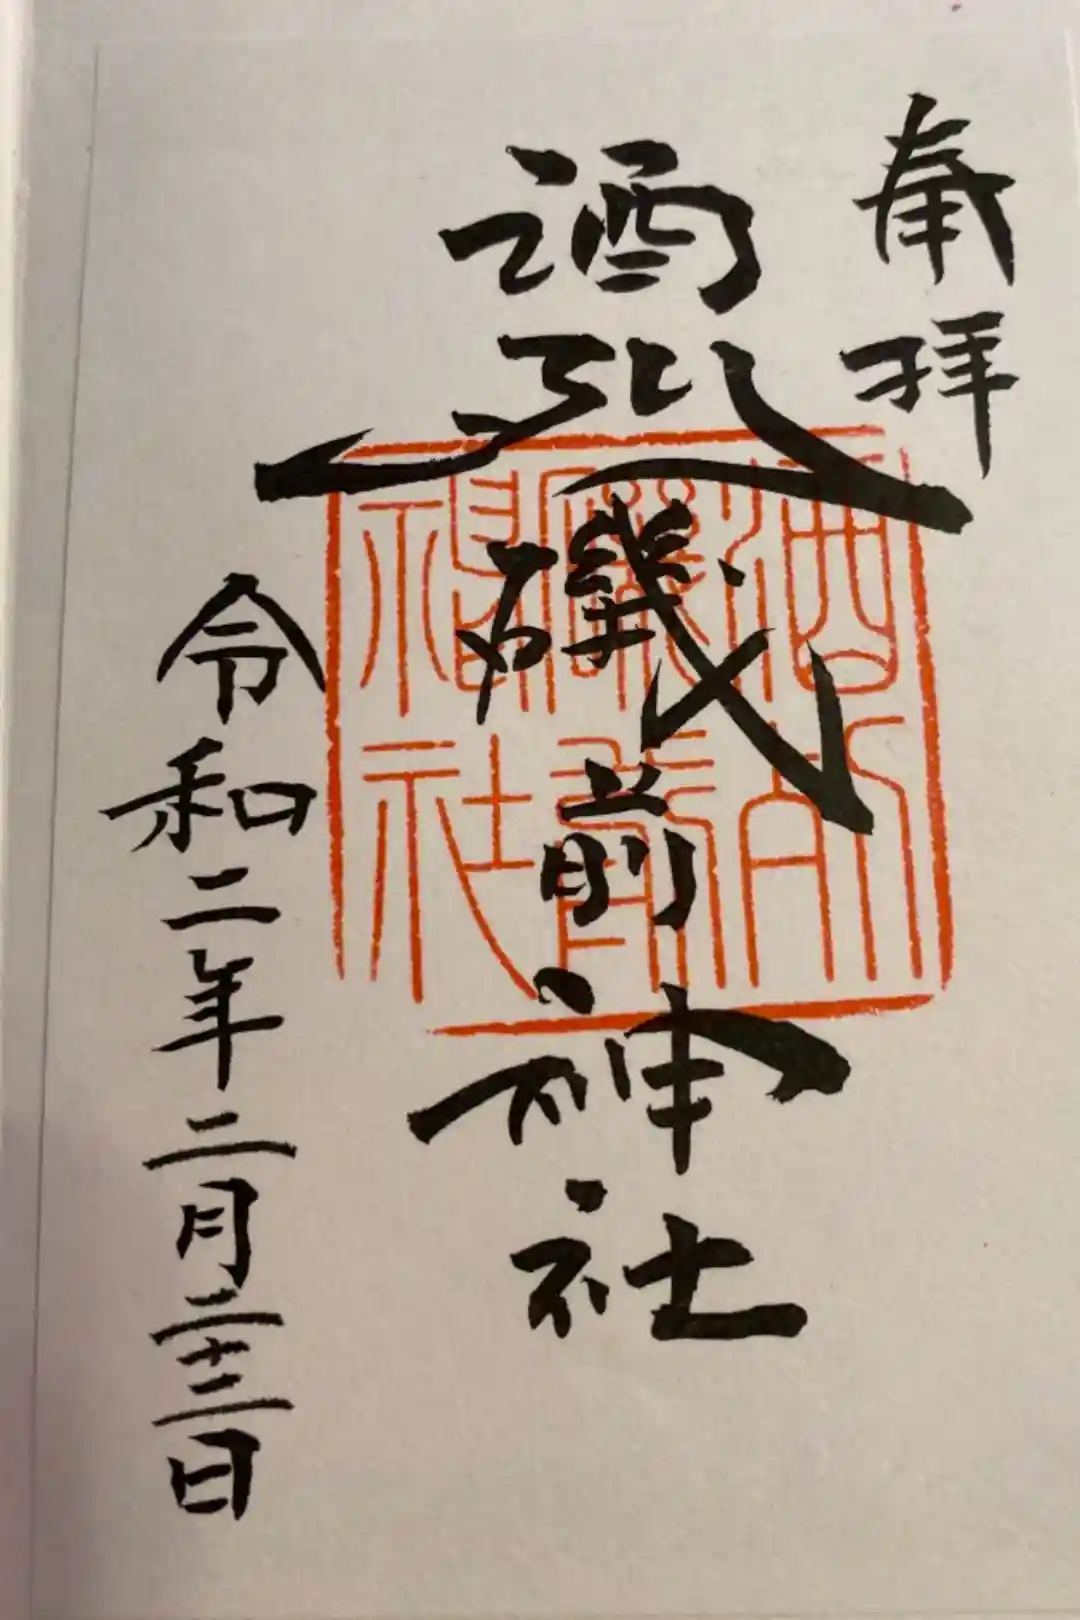 奉拝
酒列磯前神社
令和二年二月二十三日
酒列
磯前
神社